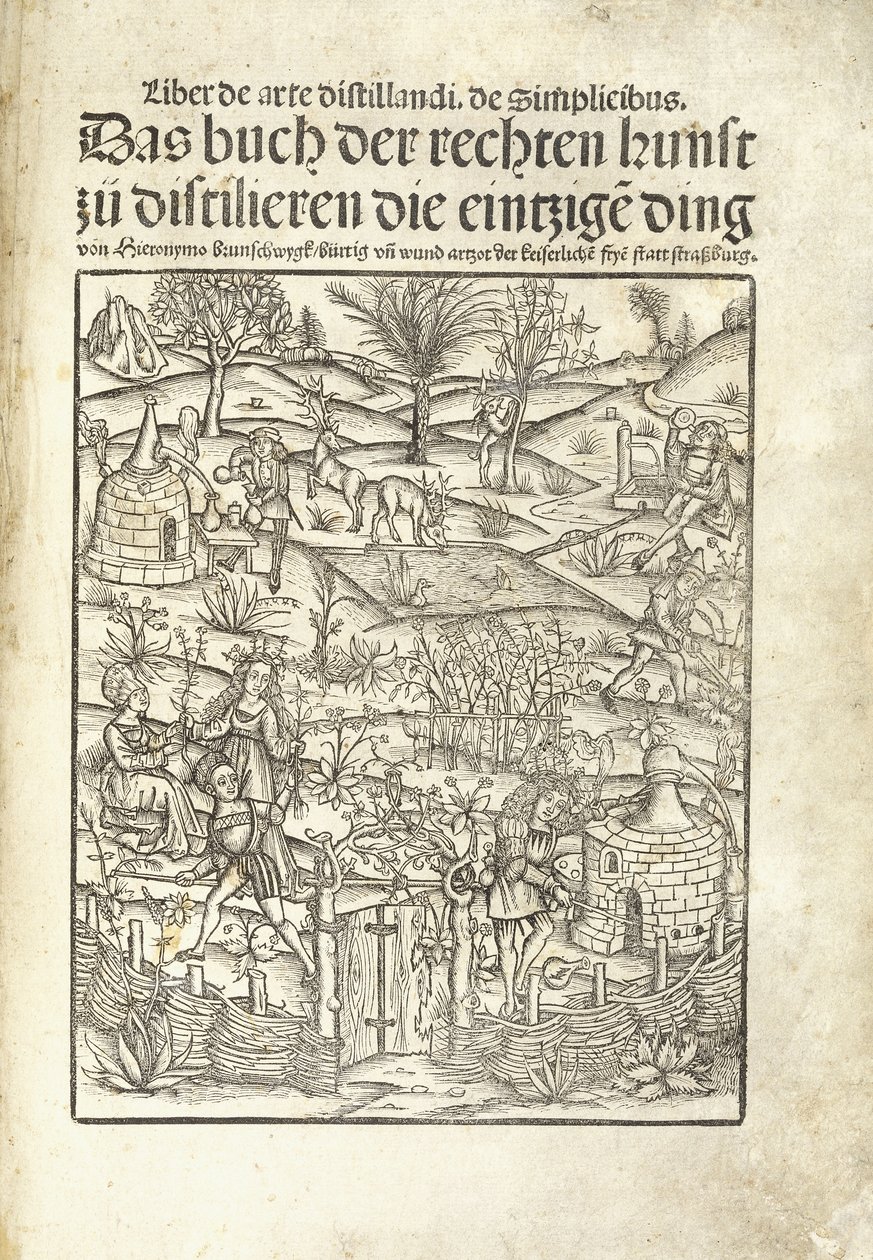 Liber de arte distillandi. de Simplicibus.
Das buch der rechten kunst
zü distilieren die eintzigē ding
von Hieronymo brunschwygk/bürtig vñ wund artzot der keiserlichē fryē statt straßburg.